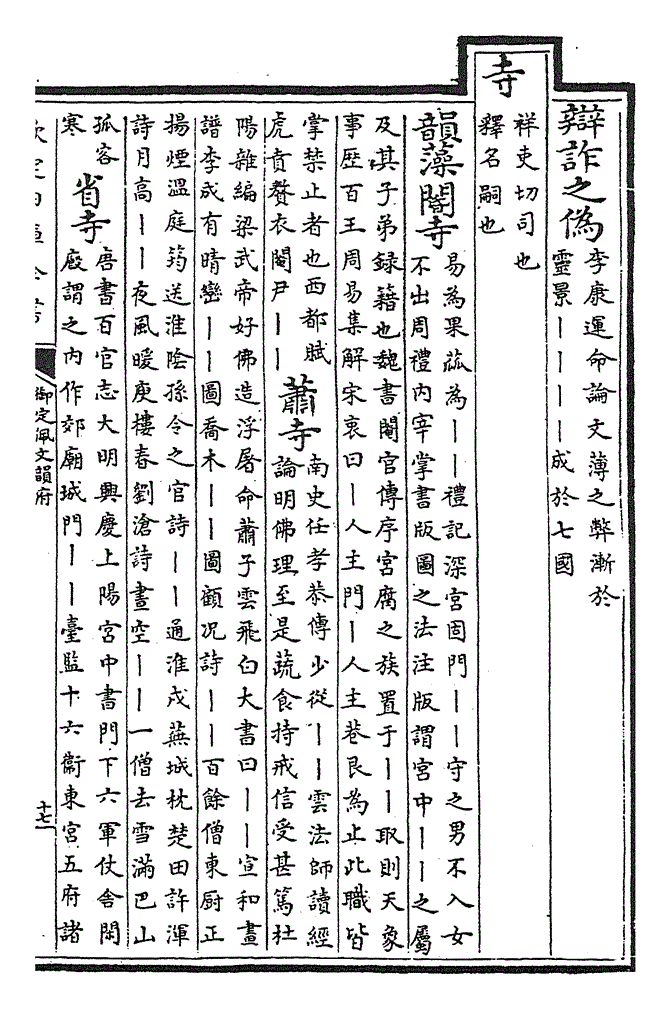 辯詐之偽
李康運命論文薄之弊漸於
靈景丨丨丨丨成於七國
寺
祥吏切司也
釋名嗣也
韻藻閽寺
易為果蓏為丨丨禮記深宮固門丨丨守之男不入女
不出周禮內宰掌書版圖之法注版謂宮中丨丨之屬
及其子弟録籍也魏書閹官傳序宮腐之族置于丨丨取則天象
事歷百王周易集解宋衷曰丨人主門丨人主巷艮為止此職皆
掌禁止者也西都賦
虎賁贅衣閹尹丨丨
蕭寺
南史任孝恭傳少從丨丨雲法師讀經
論明佛理至是蔬食持戒信受甚篤杜
陽雜編梁武帝好佛造浮屠命蕭子雲飛白大書曰丨丨宣和畫
譜李成有晴巒丨丨圖喬木丨丨圖顧况詩丨丨百餘僧東厨正
揚煙溫庭筠送淮陰孫令之官詩丨丨通淮戍蕪城枕楚田許渾
詩月高丨丨夜風暖庾樓春劉滄詩晝空丨丨一僧去雪滿巴山
孤客
寒
省寺
唐書百官志大明興慶上陽宮中書門下六軍仗舍閑
廏謂之内作郊廟城門丨丨臺監十六衛東宮五府諸
欽定四庫全書
御定佩文韻府
十七